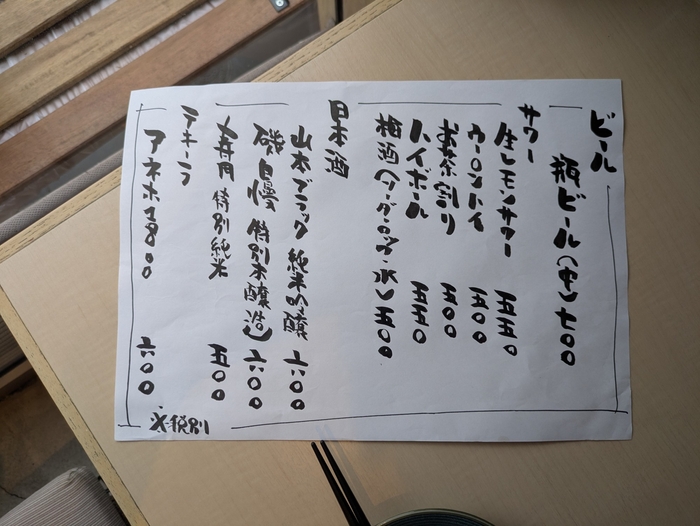 ビール
瓶ビール(中) 七〇〇
サワー
生レモンサワー 五五〇
ウーロンハイ 五〇〇
お茶割り 五〇〇
ハイボール 五五〇
梅酒(ソーダ・ロック・水) 五〇〇
日本酒
山本ブラック 純米吟醸 六〇〇
磯自慢 特別本醸造 六〇〇
特別純米 五〇〇
テキーラ
アネホ1800 六〇〇
※税別